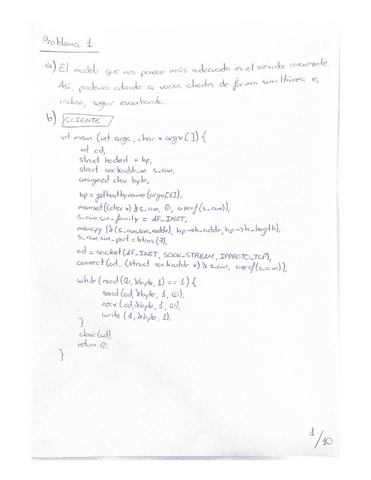 Problema 1
a) El modelo que nos parece más adecuado es el servidor concurrente.
Así, podemos atender a varios clientes de forma simultánea e,
incluso, seguir escuchando.
b) CLIENTE
int main (int argc, char * argv[]) {
int cd;
struct hostent * hp;
struct sockaddr_in s_ain;
unsigned char byte;
hp = gethostbyname (argv[1]);
memset((char *) &s_ain, 0, sizeof(s_ain));
s_ain.sin_family = AF_INET;
memcpy (&(s_ain.sin_addr), hp->h_addr, hp->h_length);
s_ain.sin_port = htons(7);
cd = socket(AF_INET, SOCK_STREAM, IPPROTO_TCP);
connect(cd, (struct sockaddr *) &s_ain, sizeof(s_ain));
while (read(0, &byte, 1) == 1) {
send (cd, &byte, 1, 0);
recv (cd, &byte, 1, 0);
write (1, &byte, 1);
}
close (cd);
return 0;
}
1/10